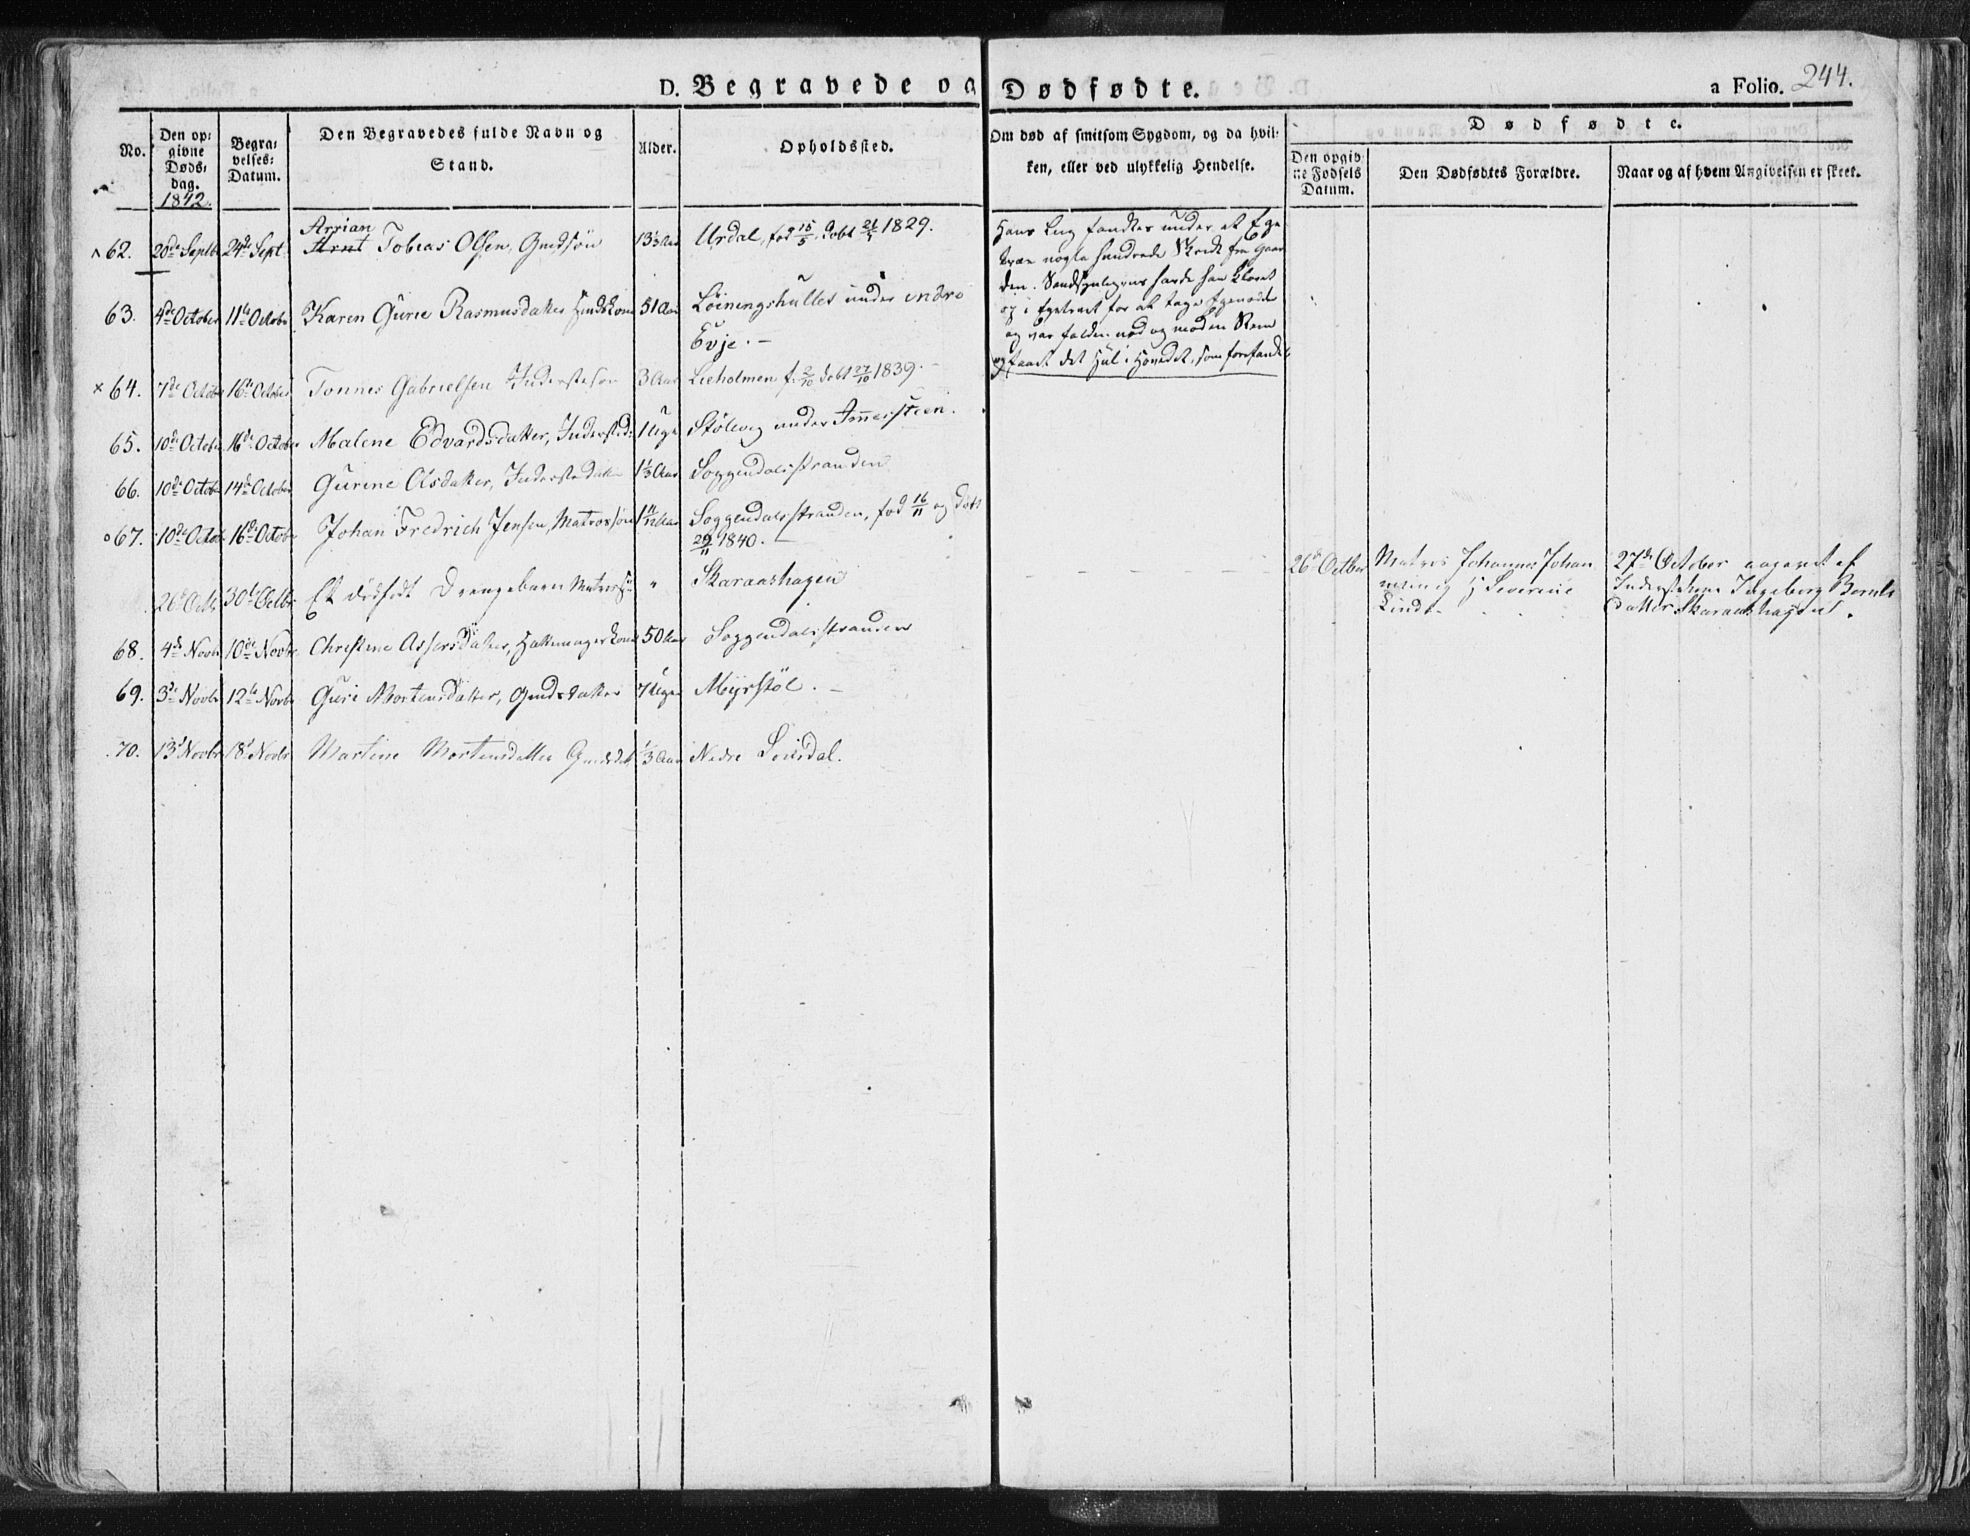 D. Begravede og Dødfødte.
a Folio. 244.
No.
Den opgivne Døds-dag.
1842.
Begravelses-Datum.
Den Begravedes fulde Navn og Stand.
Alder.
Opholdssted.
Om død af smitsom Sygdom, og da hvil-
ken, eller ved ulykkelig Hendelse.
Dødfødte.
Den opgivne Fødsels Datum.
Den Dødfødtes Forældre.
Naar og af hvem Angivelsen er skeet.
Arrian
62. 20de Septbr 24de Sept. Arnt Tobias Olsen, Gmdssøn 13 1/3 Aar Urdal, fød 15/5, døbt 1829.
Hans Lig fandtes under et Ege-
træe nogle hundrede Skridt fra Gaar-
den. Sandsynligviis havde han klavret
op i Egetræet for at tage Egenødder
og var falden ned og mod en Steen
og faaet det Hul i Hovedet, som forefandtes
63. 4de October 11te Octobr Karen Gurie Rasmusdatter 51 Aar Løiningshullet under indre
Evje. –
× 64. 7de Octobr 16de October Tonnes Gabrielsen Inderstesøn 3 Aar Lieholmen f. 2/10 døbt 27/10 1839. –
65. 10de Octobr 16de October Malene Edvardsdatter, Indersted: 1 Uge Stølevig under
66. 10de Octobr 14de October Gurine Olsdatter, Inderstedatter 1 1/3 Aar Soggendalsstranden
67. 10de Octobr 16de Octobr Johan Fredrich Jensen, Matrossøn 1 11/12 Aar Soggendalsstranden, fød 16/11 og døbt
29/11 1840. –
26de Octbr 30te Octbr Et dødfødt Drengebarn Matrossøn " Skaraashagen
26de Octber Matros Johannes Johan
Severine
Linde
27de October angivet af
Inderstekone Ingeborg Bernts
datter Skaraashagen.
68. 4de Novbr 10de Novbr Christine Assersdatter, Hattemagerkone 50 Aar Soggendalsstranden
69. 3de Novbr 12te Novbr Guri Mortensdatter, Gmdsdatter 7 Uger Myrstøl. –
70. 13de Novbr 18de Novbr Martine Mortensdatter Gmdsdatt 1/3 Aar Nedre